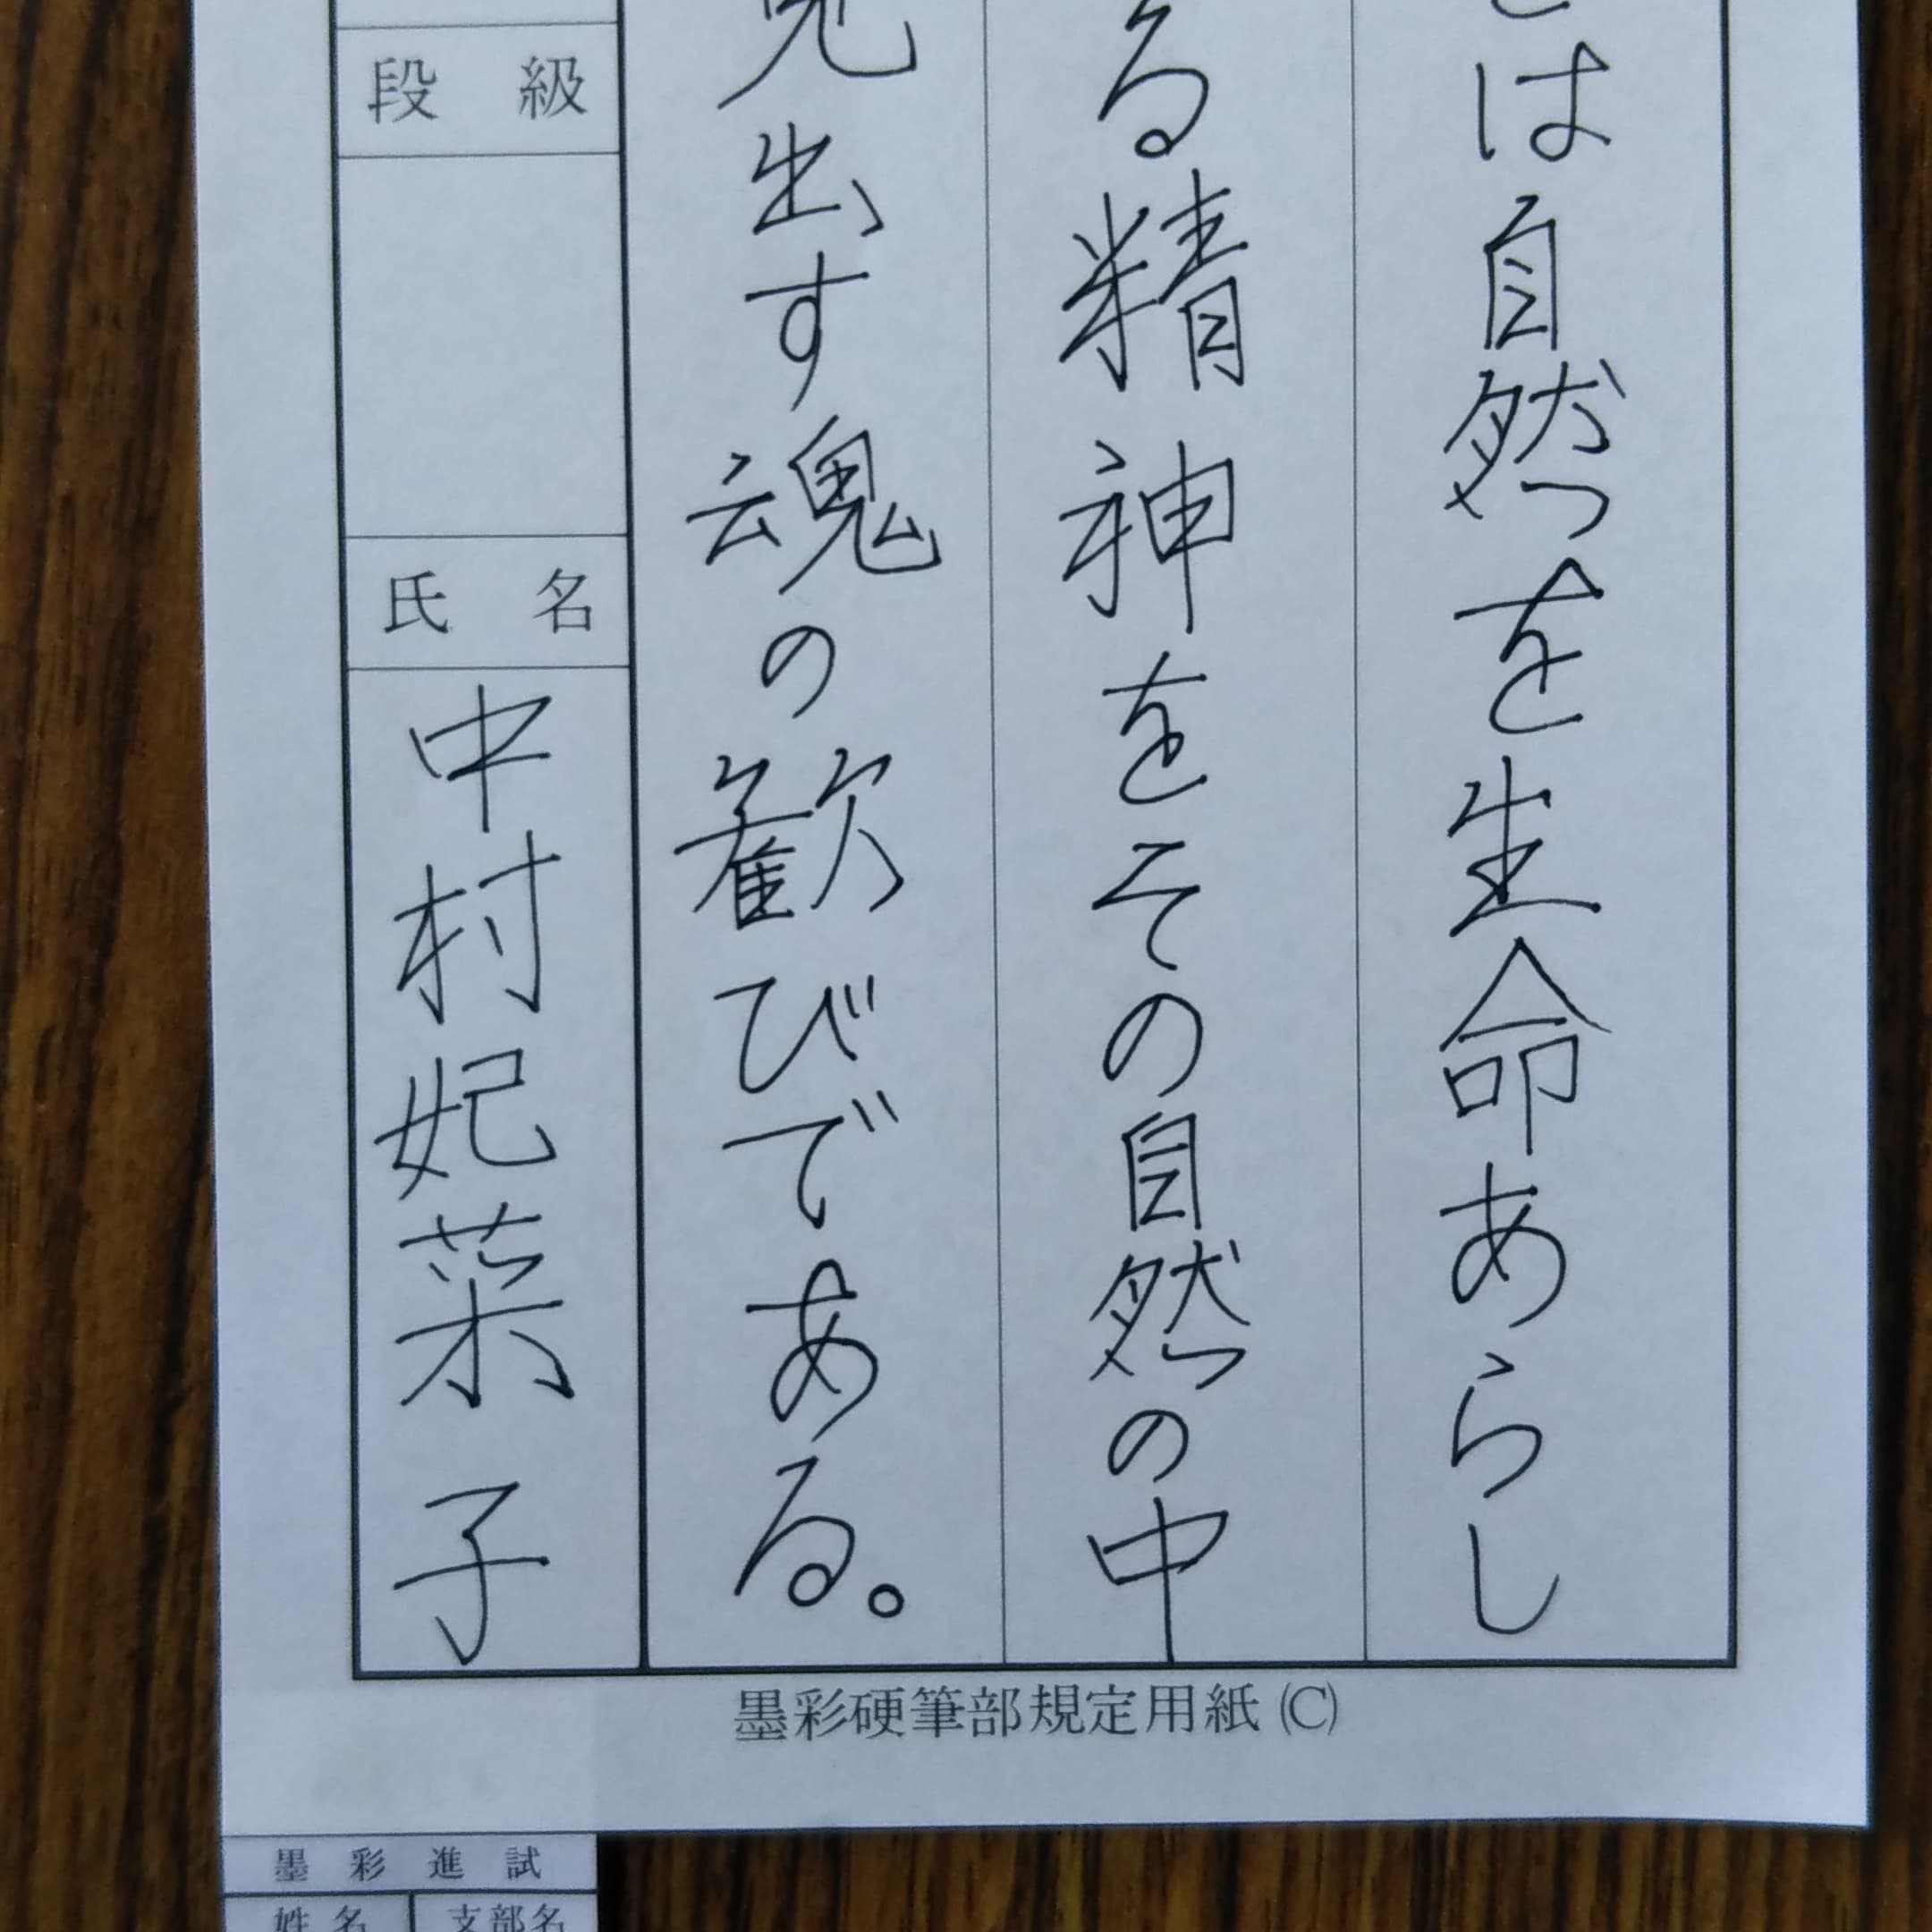 は自然を生命あらし
る精神をその自然の中
見出す魂の歓びである。
段級
氏名
中村妃菜子
墨彩硬筆部規定用紙(C)
墨彩進試
姓名 支部名